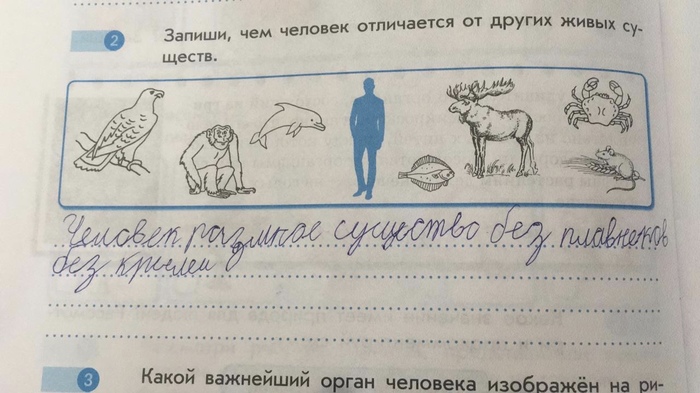 2 Запиши, чем человек отличается от других живых су-
ществ.
Человек размное существо без плавнеков
без крылеи
3 Какой важнейший орган человека изображён на ри-